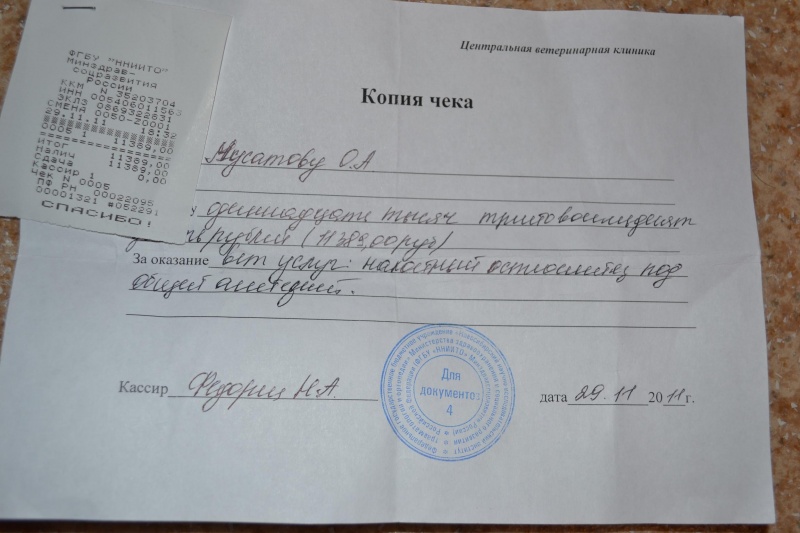 ФГБУ "ННИИТО"
Минздрав-
соцразвития
России
ККМ N 35203704
ИНН 005406011563
ЭКЛЗ 0869322831
СМЕНА 0050-20001
29.11.11 18:32
0005 1 11389,00
ИТОГ 11389,00
Налич 11389,00
Сдача 0,00
Кассир 1
Чек N 0005
ПФ РН 00022095
00001321 #052291
СПАСИБО!
Центральная ветеринарная клиника
Копия чека
Мусатову О.А.
одиннадцать тысяч тристовосемьдесят
рублей (11389,00руб)
За оказание вет услуг: накостный остеосинтез под
общей анестезией.
Кассир Федорец Н.А.
Для
документов
4
дата 29.11 2011г.